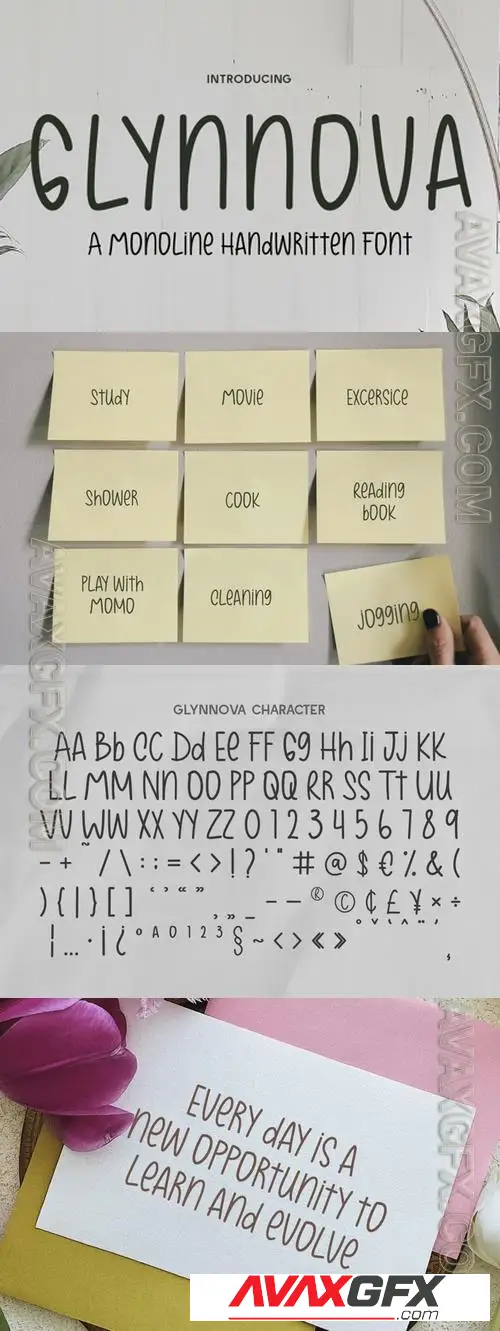 INTRODUCING
GLYNNOVA
A MONOLINE HANDWRITTEN FONT
STUDY
MOVIE
EXCERSICE
SHOWER
COOK
READING
BOOK
PLAY WITH
MOMO
CLEANING
JOGGING
GLYNNOVA CHARACTER
AA Bb CC Dd Ee FF Gg Hh Ii Jj KK
LL MM NN OO PP QQ RR SS Tt UU
VV WW XX YY ZZ 0 1 2 3 4 5 6 7 8 9
- + ~ / \ : ; = < > ! ? ' " # @ $ € % & (
) { | } [ ] ‘ ’ “ ” , „ _ – — ® © ¢ £ ¥ × ÷
¦ … · ¡ ¿ º ª 0 1 2 3 § ~ ‹ › « »
EVERY DAY IS A
NEW OPPORTUNITY TO
LEARN AND EVOLVE
AVAXGFX.COM
AVAXGFX.COM
AVAXGFX
.com